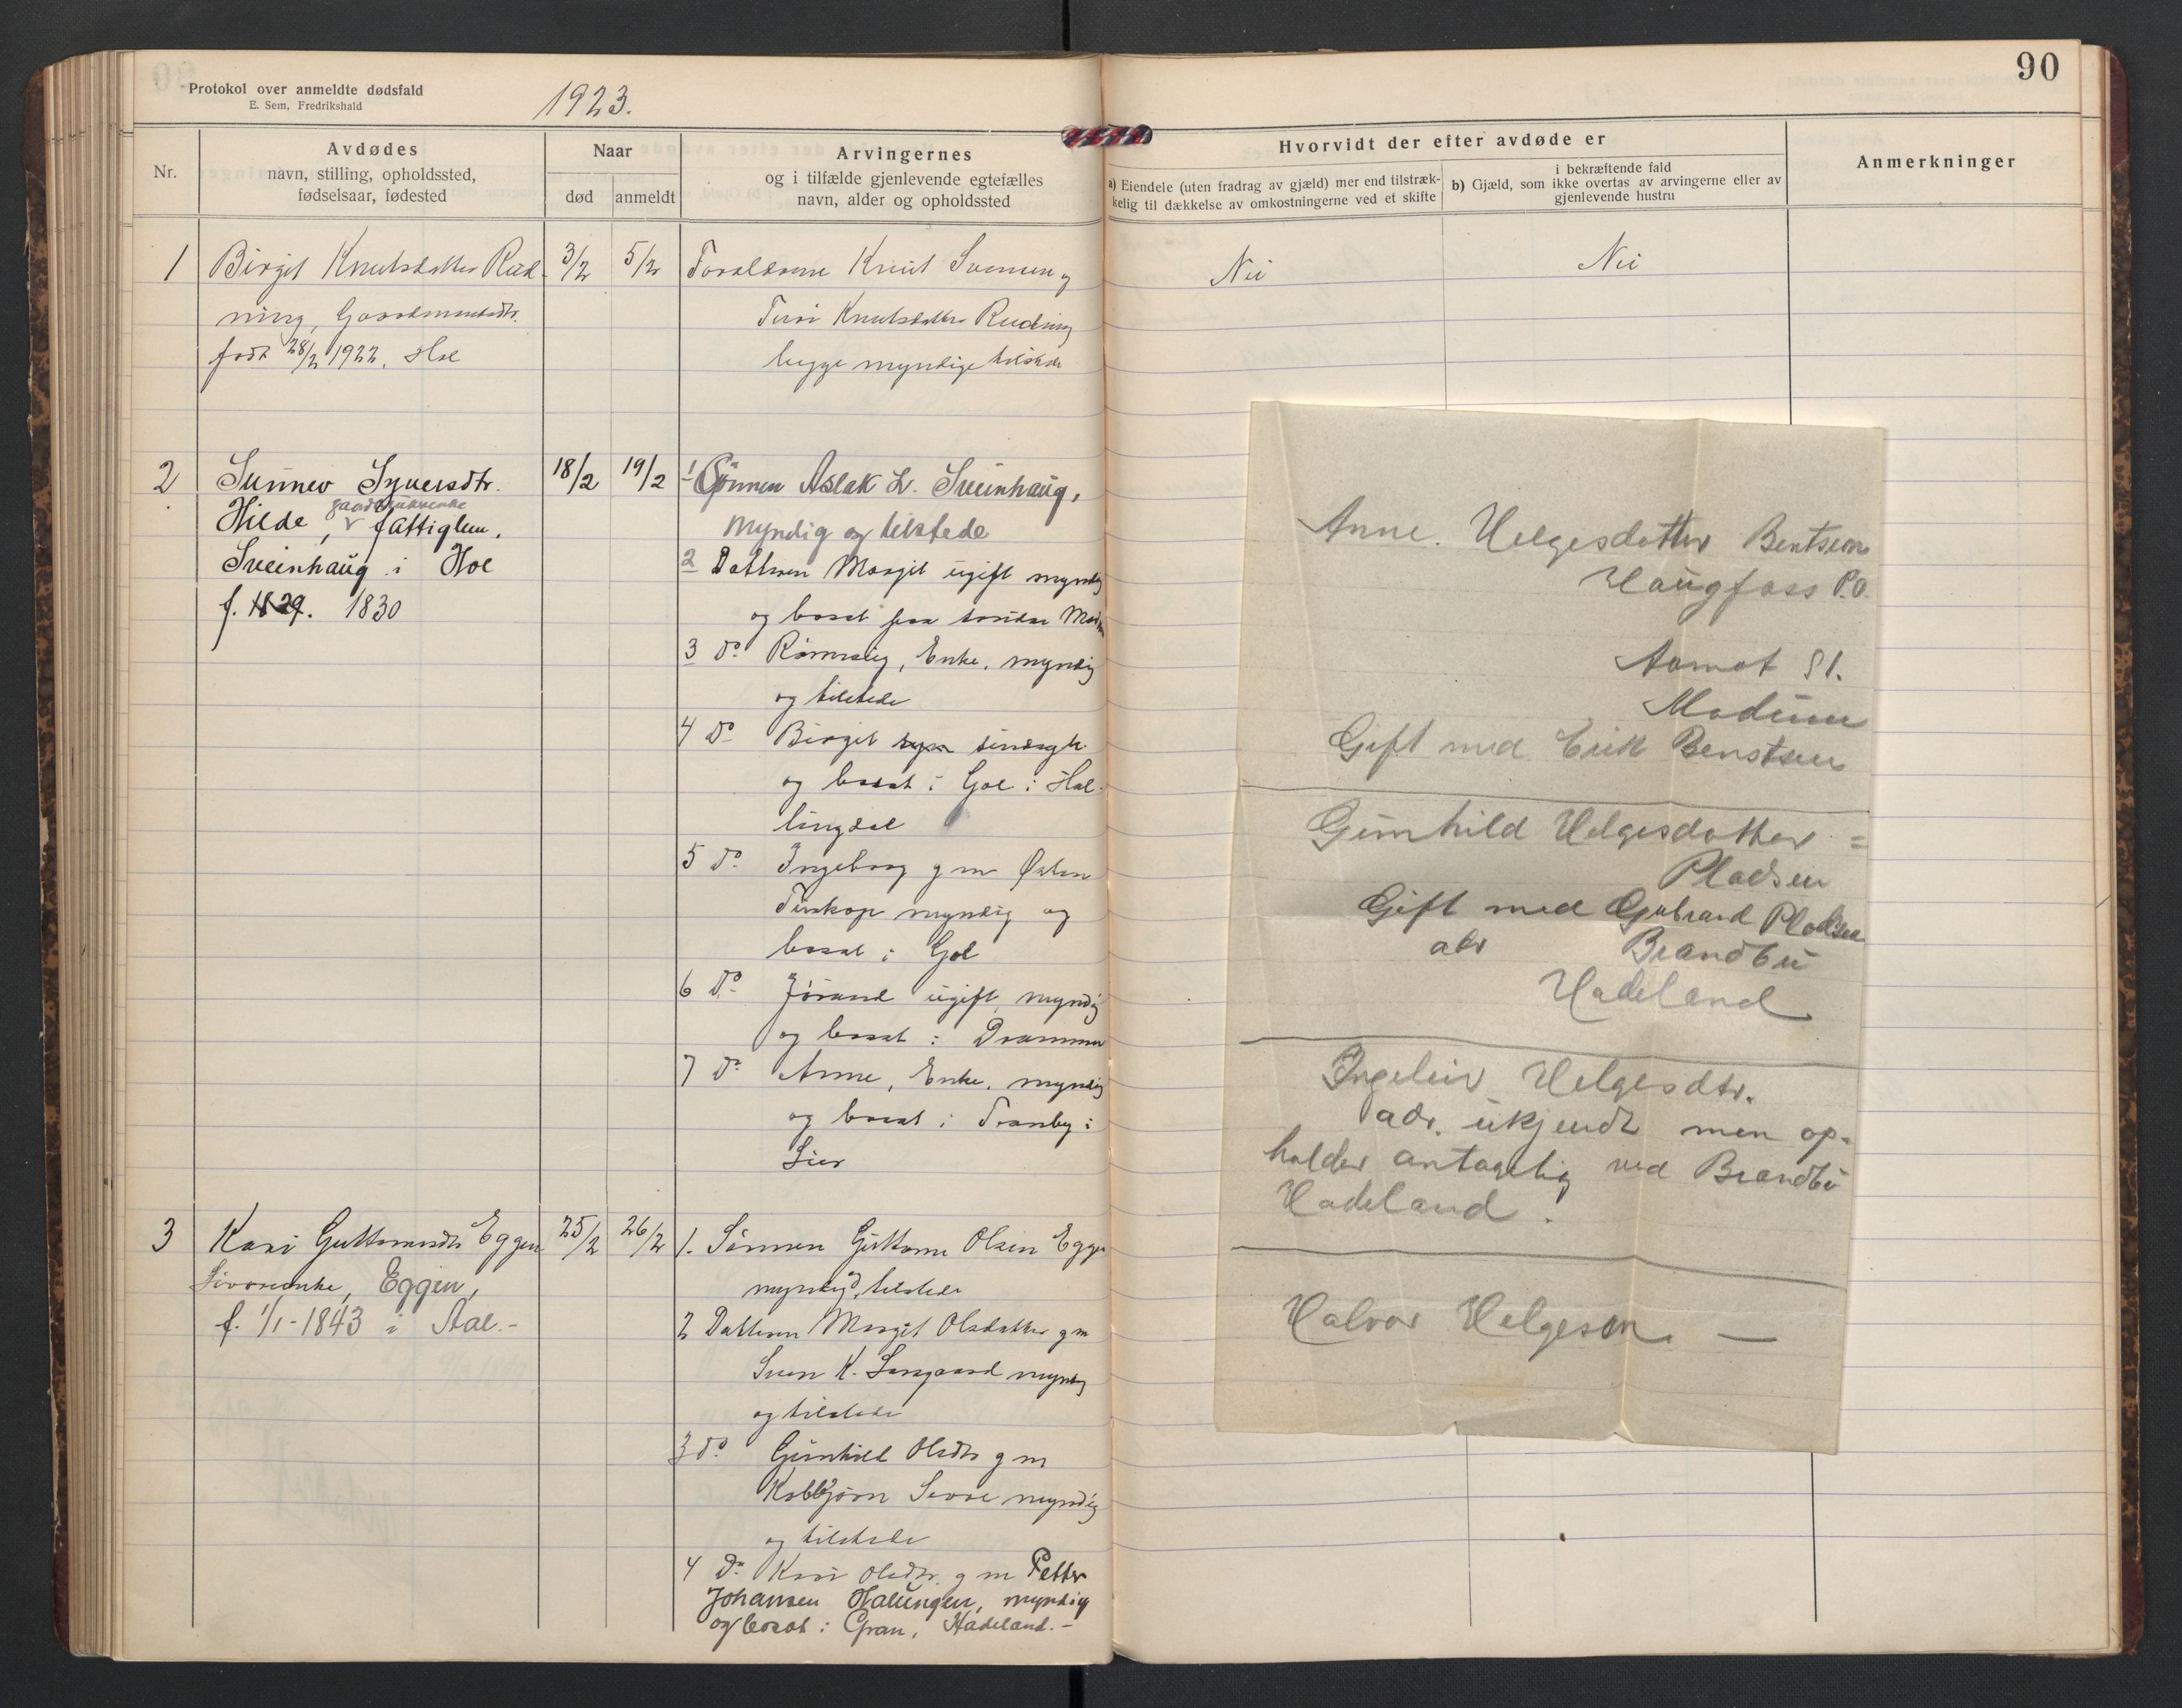 90
Protokol over anmeldte dødsfald
E. Sem, Fredrikshald
1923.
Nr.
Avdødes
navn, stilling, opholdssted,
fødselsaar, fødested
Naar
død
anmeldt
Arvingernes
og i tilfælde gjenlevende egtefælles
navn, alder og opholdssted
Hvorvidt der efter avdøde er
a) Eiendele (uten fradrag av gjæld) mer end tilstræk-
kelig til dækkelse av omkostningerne ved et skifte
i bekræftende fald
b) Gjæld, som ikke overtas av arvingerne eller av
gjenlevende hustru
Anmerkninger
1
Birgit Knutsdatter Rud-
ning, Gaardmandsdtr.
født 28/2 1922. Hol
3/2
5/2
Forældrene Knut Svensen og
Turi Knutsdatter Rudning
begge myndige tilstede
Nei
Nei
2
Sunnev Syversdtr.
gaardbrukerenke
Hilde, v fattiglem.
Sveinhaug i Hol
f. 1829. 1830
18/2
19/2
1 Sønnen Aslak L. Sveinhaug,
myndig og tilstede
2 Datteren Margit ugift myndig
og bosat paa søndre
3 Do. Rønnaug, Enke, myndig
og tilstede
4 Do Birgit
og bosat i Gol i Hal-
lingdal
5 Do. Ingeborg g m
myndig og
bosat i Gol
6 Do. Jørand ugift, myndig
og bosat i Drammen
7 Do Anne, Enke, myndig
og bosat i Tranby i
Lier
3
Kari Guttormsdtr Eggen
Livøreenke, Eggen,
f. 1/1-1843 i Aal.-
25/2
26/2
1. Sønnen Guttorm Olsen Eggen
myndig og tilstede
2 Datteren Margit Olsdatter g m
Sven K. myndig
og tilstede
3 do. Gunhild Olsdtr g m
Kolbjørn myndig
og tilstede
4 Do. Kari Olsdtr. g m Petter
Johansen Halungen, myndig
og bosat i Gran, Hadeland.-
Anne. Helgesdatter Bentsen
Haugfoss P.O.
Aamot St.
Modum
Gift med Erik Benstsen
Gunhild Helgesdatter =
Pladsen
Gift med Gubrand Pladsen
adr Brandbu
Hadeland
Ingeleiv Helgesdtr.
adr. ukjendt men op-
holder antagelig ved Brandbu
Hadeland.
Halvor Helgeson. —